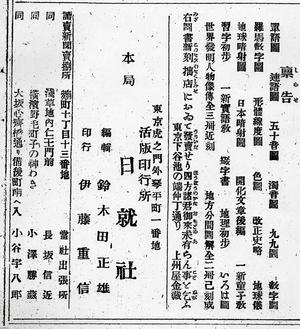 稟告
單語圖 五十音圖 濁音圖 九九圖 數字圖
連語圖 形體線度圖 色圖 改正史略 地球儀
羅馬數字圖
地球暗射圖 日本暗射圖 開化文章後編 一新童子教
習字初步 新實語教 綴字書 地理初步 いろは圖
世界發明人物像傳全三册近刻 地方分間圖解全二册已刻成
右圖書新刻拙店において發賣せり四方諸君御來求有らん事を乞ふ
東京下谷池の端仲丁通り 上州屋金藏
東京虎之門外琴平町一番地
活版印行所
本局 日就社
編輯 鈴木田正雄
印行 伊藤重信
讀賣新聞賣捌所 麹町十丁目十三番地 當社出張所
同 淺草地內仁王門前 長坂信近
同 橫濱野毛町子の神わき 小澤勝藏
同 大坂心齋橋通り備後町南へ入 小谷宇八郎